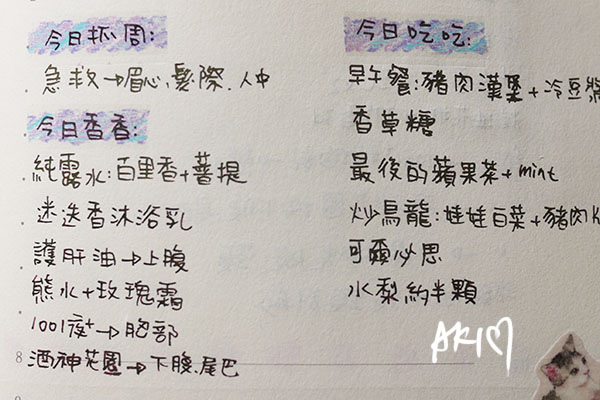 今日抓周:
急救→眉心、髮際.人中
今日香香:
純露水:百里香+菩提
迷迭香沐浴乳
護肝油→上腹
熊水+玫瑰霜
1001夜+→胞部
酒神花園→下腹.尾巴
8
今日吃吃:
早午餐:豬肉漢堡+冷豆漿
香草糖
最後的蘋果茶+mint
炒烏龍:娃娃白菜+豬肉
可爾必思
水梨約半顆
AKI♡